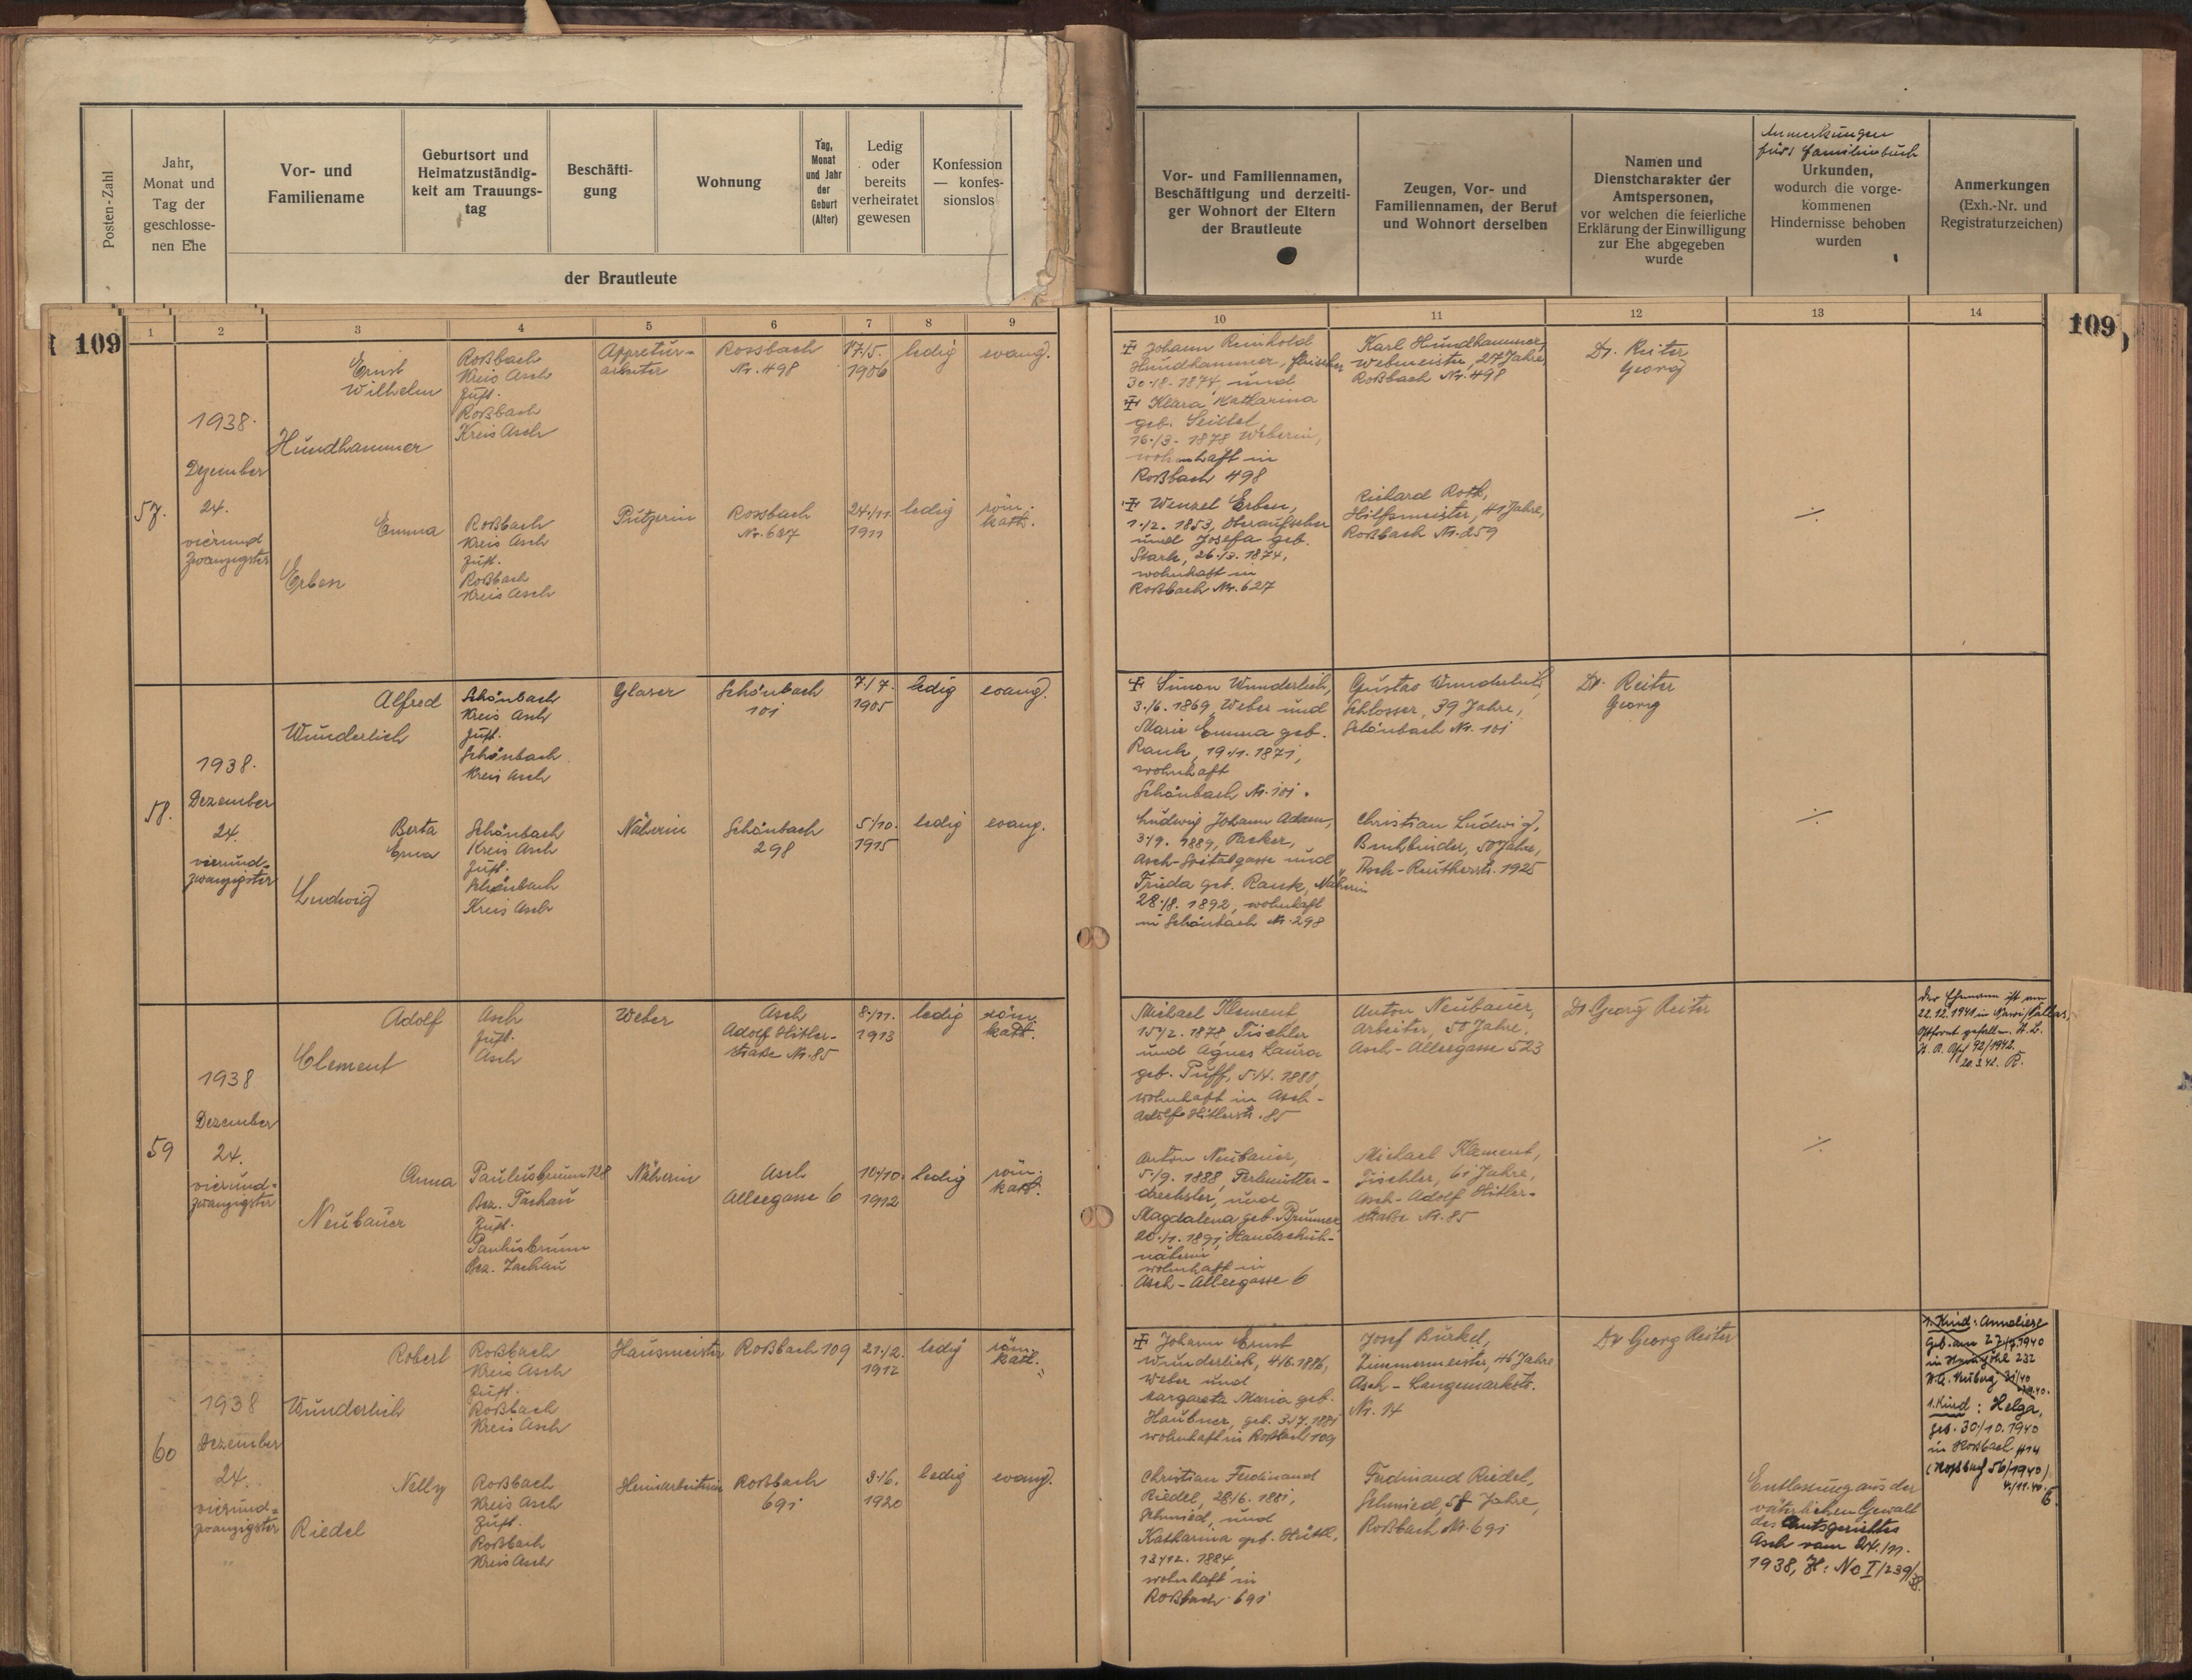 Posten-Zahl
Jahr,
Monat und
Tag der
geschlosse-
nen Ehe
Vor- und
Familiename
Geburtsort und
Heimatzuständig-
keit am Trauungs-
tag
Beschäfti-
gung
Wohnung
Tag,
Monat
und Jahr
der
Geburt
(Alter)
Ledig
oder
bereits
verheiratet
gewesen
Konfession
— konfes-
sionslos
der Brautleute
Vor- und Familiennamen,
Beschäftigung und derzeiti-
ger Wohnort der Eltern
der Brautleute
Zeugen, Vor- und
Familiennamen, der Beruf
und Wohnort derselben
Namen und
Dienstcharakter der
Amtspersonen,
vor welchen die feierliche
Erklärung der Einwilligung
zur Ehe abgegeben
wurde
Anmerkungen
fürs Familienbuch
Urkunden,
wodurch die vorge-
kommenen
Hindernisse behoben
wurden
Anmerkungen
(Exh.-Nr. und
Registraturzeichen)
109
1 2 3 4 5 6 7 8 9
10 11 12 13 14
109
57.
1938.
Dezember
24.
vierund
zwanzigster
Ernst
Wilhelm
Hundhammer
Roßbach
Kreis Asch
Zust.
Roßbach
Kreis Asch
Appretur-
arbeiter
Rossbach
Nr. 498
17./5.
1906
ledig
evang.
Emma
Erben
Roßbach
Kreis Asch
Zust.
Roßbach
Kreis Asch
Putzerin
Rossbach
Nr. 627
24./11.
1911
ledig
röm.
kath.
Johann Reinhold
Hundhammer, Fleischer
30./8. 1874, und
Klara Katharina
geb. Seidel
16./3. 1878 Weberin,
wohnhaft in
Roßbach 498
Wenzel Erben,
1./2. 1853, Oberaufseher
und Josefa geb.
Stark, 26./3. 1874,
wohnhaft in
Roßbach Nr. 627
Karl Hundhammer,
Webmeister, 27 Jahre,
Roßbach Nr. 498
Richard Roth,
Hilfsmeister, 41 Jahre,
Roßbach Nr. 259
Dr. Reiter
Georg
58.
1938.
Dezember
24.
vierund-
zwanzigster
Alfred
Wunderlich
Schönbach
Kreis Asch
Zust.
Schönbach
Kreis Asch
Glaser
Schönbach
101
7./7.
1905
ledig
evang.
Berta
Erna
Ludwig
Schönbach
Kreis Asch
Zust.
Schönbach
Kreis Asch
Näherin
Schönbach
298
5./10.
1915
ledig
evang.
Simon Wunderlich,
3./6. 1869, Weber und
Marie Emma geb.
Rank, 19./1. 1871,
wohnhaft
Schönbach Nr. 101.
Ludwig Johann Adam,
3./9. 1889, Packer,
Asch-Spitalgasse und
Frieda geb. Rank, Näherin
28./8. 1892, wohnhaft
in Schönbach Nr. 298
Gustav Wunderlich,
Schlosser, 39 Jahre,
Schönbach Nr. 101
Christian Ludwig,
Buchbinder, 50 Jahre,
Asch-Reutherstr. 1925
Dr. Reiter
Georg
59
1938
Dezember
24.
vierund-
zwanzigster
Adolf
Clement
Asch
Zust.
Asch
Weber
Asch
Adolf Hitler-
straße Nr. 85
8./11.
1913
ledig
röm.
kath.
Anna
Neubauer
Paulusbrunn 128
Bez. Tachau
Zust.
Paulusbrunn
Bez. Tachau
Näherin
Asch
Alleegasse 6
10./10.
1912
ledig
röm.
kath.
Michael Klement
15./2. 1878 Tischler
und Agnes Laura
geb. Puff, 5./4. 1880,
wohnhaft in Asch-
Adolf Hitlerstr. 85
Anton Neubauer,
5./9. 1888, Perlmutter-
drechsler, und
Magdalena geb. Brunner
20./1. 1891, Handschuh-
näherin
wohnhaft in
Asch-Alleegasse 6
Anton Neubauer,
Arbeiter, 50 Jahre,
Asch-Alleegasse 523
Michael Klement,
Tischler, 61 Jahre,
Asch-Adolf Hitler-
straße Nr. 85
Dr Georg Reiter
Der Ehemann ist am
22.12.1941 in
Ostfront gefallen.
92/1942.
20.3.42. R.
60
1938
Dezember
24.
vierund-
zwanzigster
Robert
Wunderlich
Roßbach
Kreis Asch
Zust.
Roßbach
Kreis Asch
Hausmeister
Roßbach 109
21./2.
1912
ledig
röm.
kath.
Nelly
Riedel
Roßbach
Kreis Asch
Zust.
Roßbach
Kreis Asch
Heimarbeiterin
Roßbach
691
3./6.
1920
ledig
evang.
Johann Ernst
Wunderlich, 4/6. 1886,
Weber und
Margareta Maria geb.
Haubner, geb.
wohnhaft in Roßbach 109
Christian Ferdinand
Riedel, 28./6. 1881,
Schmied, und
Katharina geb. Hüttl,
13./12. 1884,
wohnhaft in
Roßbach 691
Josef Burkel,
Zimmermeister, 46 Jahre
Asch-Langemarkstr.
Nr. 14
Ferdinand Riedel,
Schmied, 58 Jahre,
Roßbach Nr. 691
Dr Georg Reiter
Entlassung aus der
väterlichen Gewalt
des Amtsgerichtes
Asch vom 24./11.
1938, Z: Nc I/239/38.
1. Kind: Anneliese
geb. am 1940
in 232
1. Kind: Helga,
geb. 30/10. 1940
in Roßbach 414
(Roßbach 56/1940)
4./11.40.